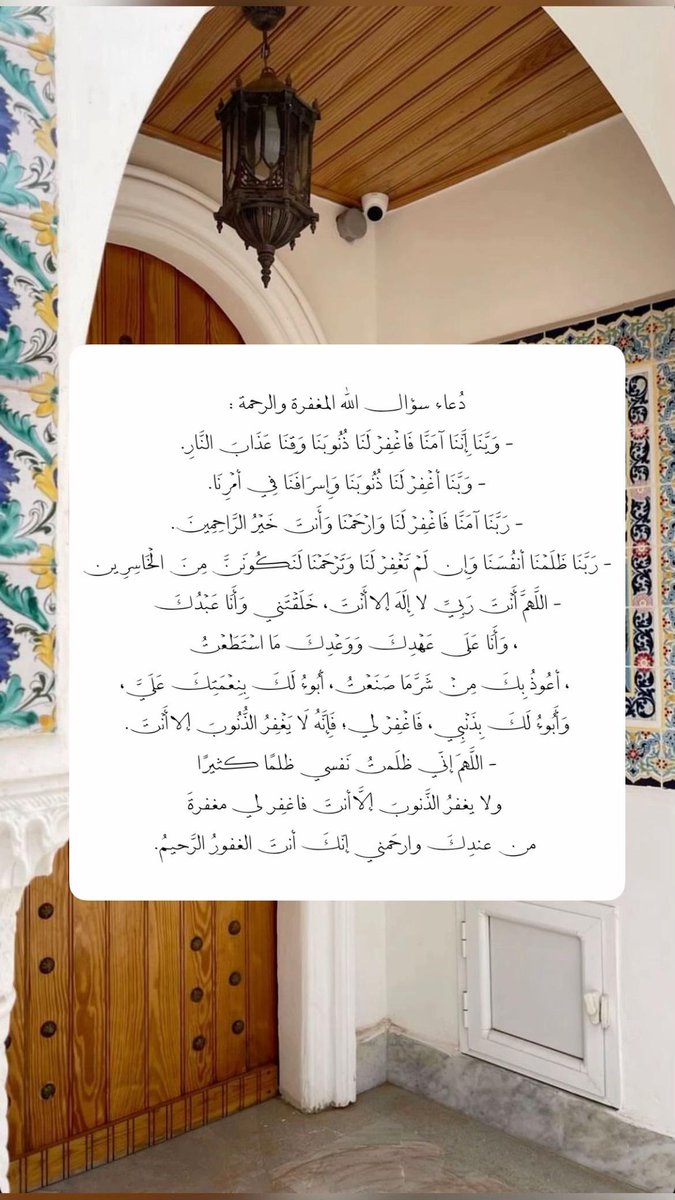 دُعاء سؤال الله المغفرة والرحمة :
- وَبَّنَا إِنَّنَا آمَنَّا فَاغْفِرْ لَنَا ذُنُوبَنَا وَقِنَا عَذَابَ النَّارِ.
- وَبَّنَا أغْفِرْ لَنَا ذُنُوبَنَا وَإِسرَافَنَا فِي أَمْرِنَا.
- رَبَّنَا آمَنَّا فَاغْفِرْ لَنَا وَارْحَمْنَا وَأَنتَ خَيْرُ الرَّاحِمِينَ.
- رَبَّنَا ظَلَمْنَا أَنفُسَنَا وَإِن لَمْ تَغْفِرْ لَنَا وَتَرْحَمْنَا لَنَكُونَنَّ مِنَ الْخَاسِرِين
- اللَّهمَّ أَنْتَ رَبِيِّ لا إِلَهَ إلا أَنْتَ، خَلَقْتَنِي وَأَنَا عَبْدُكَ
، وَأَنَا عَلَى عَهْدِكَ وَوَعْدِكَ مَا اسْتَطَعْتُ
، أَعُوذُ بِكَ مِنْ شَرَّ مَا صَنَعْتُ، أَبُوءُ لَكَ بِنِعْمَتِكَ عَلَيَّ،
وَأَبُوءُ لَكَ بِذَنْبِي، فَاغْفِرْ لِي؛ فَإِنَّهُ لَا يَغْفِرُ الذُّنُوبَ إلا أَنْتَ.
- اللَّهمَ إنّي ظلَمتُ نَفسي ظلمًا كثيرًا
ولا يغفرُ الذَّنوبَ إلَّا أنتَ فاغفِر لي مغفرةً
من عندِكَ وارحَمني إنَّكَ أنتَ الغفورُ الرَّحيمُ.